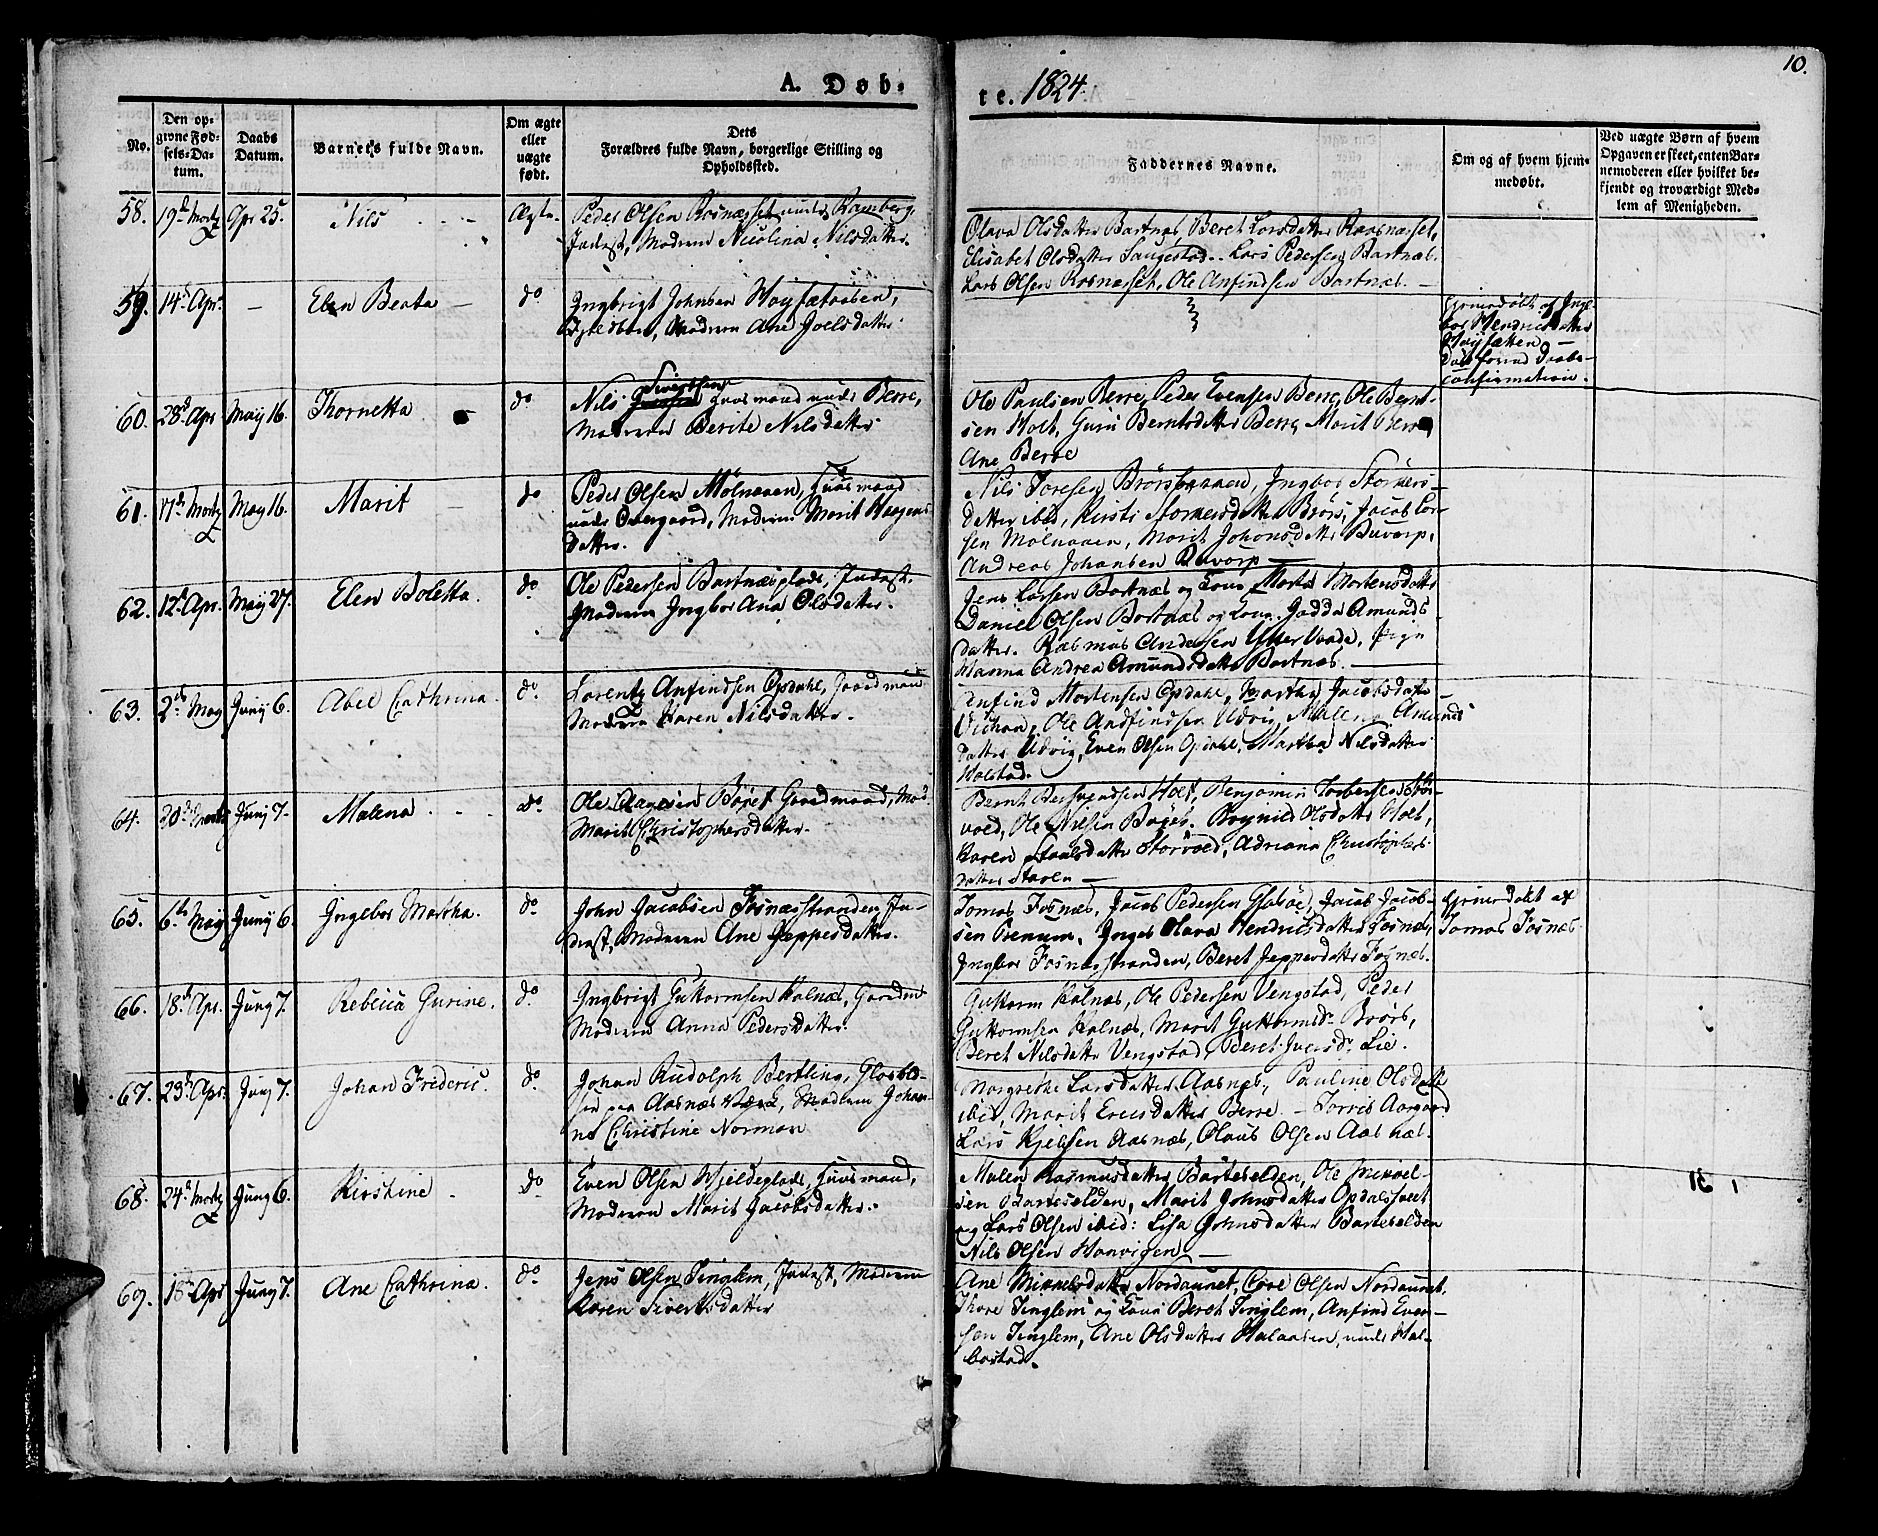 10.
A. Døb-
te. 1824.
No.
Den op-
givne Fød-
sels-Da-
tum.
Daabs
Datum.
Barnets fulde Navn.
Om ægte
eller
uægte
født.
Dets
Forældres fulde Navn, borgerlige Stilling og
Opholdssted.
Faddernes Navne.
Om og af hvem hjem-
medøbt.
Ved uægte Børn af hvem
Opgaven er skeet, enten Bar-
nemoderen eller hvilket be-
kjendt og troværdigt Med-
lem af Menigheden.
58. 19d Martz Apr 25. Nils Ægte. Peder Olsen Rosnæsset under Ramberg,
Inderst, Moderen Nicolina Nilsdatter.
Olava Olsdatter Bartnæs, Beret Larsdatter Raasnæsset,
Elisabet Olsdatter Saugestad. Lars Pedersen Bartnæs.
Lars Olsen Rosnæsset, Ole Anfindsen Bartnæs. —
59. 14d Apr. — Elen Beata — do Ingbrigt Johnsen Høysætaasen,
Moderen Ane Joelsdatter.
Hjemmedøbt af Inge-
bor Hendricsdatter
Høysætten —
Død forend Daabs-
confirmation.
60. 28d Apr May 16. Thornetta do Nils Sivertsen Huusmand under Berre,
Moderen Berite Nilsdatter.
Ole Paulsen Berre, Peder Evensen Berre, Ole Bernt-
sen Holt, Guri Berntsdatter Berre, Marit Berre,
Ane Berre
61. 17d Martz May 16. Marit do Peder Olsen Molnaaen, Huusmand
under Overgaard, Moderen Marit Haagens
datter.
Nils Toresen Brørsbraaen, Ingebor Storkers-
datter ibid, Kirsti Storkersdatter Brørs, Jacob Lar-
sen Molnaaen, Marit Johansdatter Buvarp,
Andreas Johansen Buvarp —
62. 12d Apr. May 27. Elen Boletta. do Ole Pedersen Bartnæsplads, Inderst.
Moderen Ingbor Ana Olsdatter.
Jens Larsen Bartnæs og Kone Marta Mortensdatter
Daniel Olsen Bartnæs og Kone Jødda Amunds
datter. Rasmus Andersen Ytter Vaade, Pige
Hanna Andrea Amundsdatter Bartnæs. —
63. 2d May Junij 6. Abel Cathrina. do Lorentz Anfindsen Opdahl, Gaardmand
Moderen Karen Nilsdatter.
Anfind Mortensen Opdahl, Martha Jacobsdatter
Vichan, Ole Andfindsen Udvig, Malena Amunds
datter Udvig, Even Olsen Opdahl, Martha Nilsdatter
Holstad.
64. 20d Martz Junij 7. Malena do Ole Aagesen Bøset Gaardmand, Mod
Marit Christophersdatter.
Bernt Bersvendsen Holt, Benjamin Torbersen Stor-
voed, Ole Nilsen Bøges. Ragnild Olsdatter Holt,
Karen Staalsdatter Storvoed, Adriana Christophers-
datter Staren —
65. 6te May Junij 6. Ingebor Martha. do John Jacobsen Fosnæsstranden, In-
derst, Moderen Ane Jeppesdatter.
Tomas Fosnæs, Jacob Pedersen Jacob Jacob-
sen Prenum, Inger Olava Hendricsdatter Fosnæs,
Ingbor Fosnæsstranden, Beret Jeppesdatter Fosnæs.
Hjemmedøbt af
Tomas Fosnæs.
66. 18d Apr. Junij 7. Rebecca Gurine. do Ingbrigt Guttormsen Kalnæs, Gaardm
Moderen Anna Pedersdatter.
Guttorm Kalnæs, Ole Pedersen Vengstad, Peder
Guttormsen Kalnæs, Marit Guttormsd. Brørs,
Beret Nilsdatter Vengstad, Beret Iversd. Lie.
67. 23d Apr. Junij 7. Johan Frederic. do Johan Rudolph Bertling, Glasblæ-
ser paa Aasnæs Værk, Moderen Johan-
ne Christine Norman
Margrethe Larsdatter Aasnæs, Pauline Olsdatter
ibid, Marit Ericsdatter Berre. — Torris Aargaard
Lars Kjelsen Aasnæs, Olaus Olsen Aasnæs.
68. 24d Martz Junij 6. Kirstine do Even Olsen Hjeldeplads, Huusmand,
Moderen Marit Jacobsdatter.
Malen Rasmusdatter Barteselden, Ole Mikkel-
sen Barteselden, Marit Johnsdatter Opdalsveet
og Lars Olsen ibid: Lisa Johnsdatter Barteselden
Nils Olsen Hanvigen —
69. 18d Apr Junij 7. Ane Cathrina. do Jens Olsen Tinglem, Inderst, Moderen
Karen Sivertsdatter
Ane Mikkelsdatter Nordaunet, Ove Olsen Nordaunet,
Thore Tinglem og Kone Beret Tinglem, Anfind Even-
sen Tinglem, Ane Olsdatter Halaasen under Hal-
bostad.